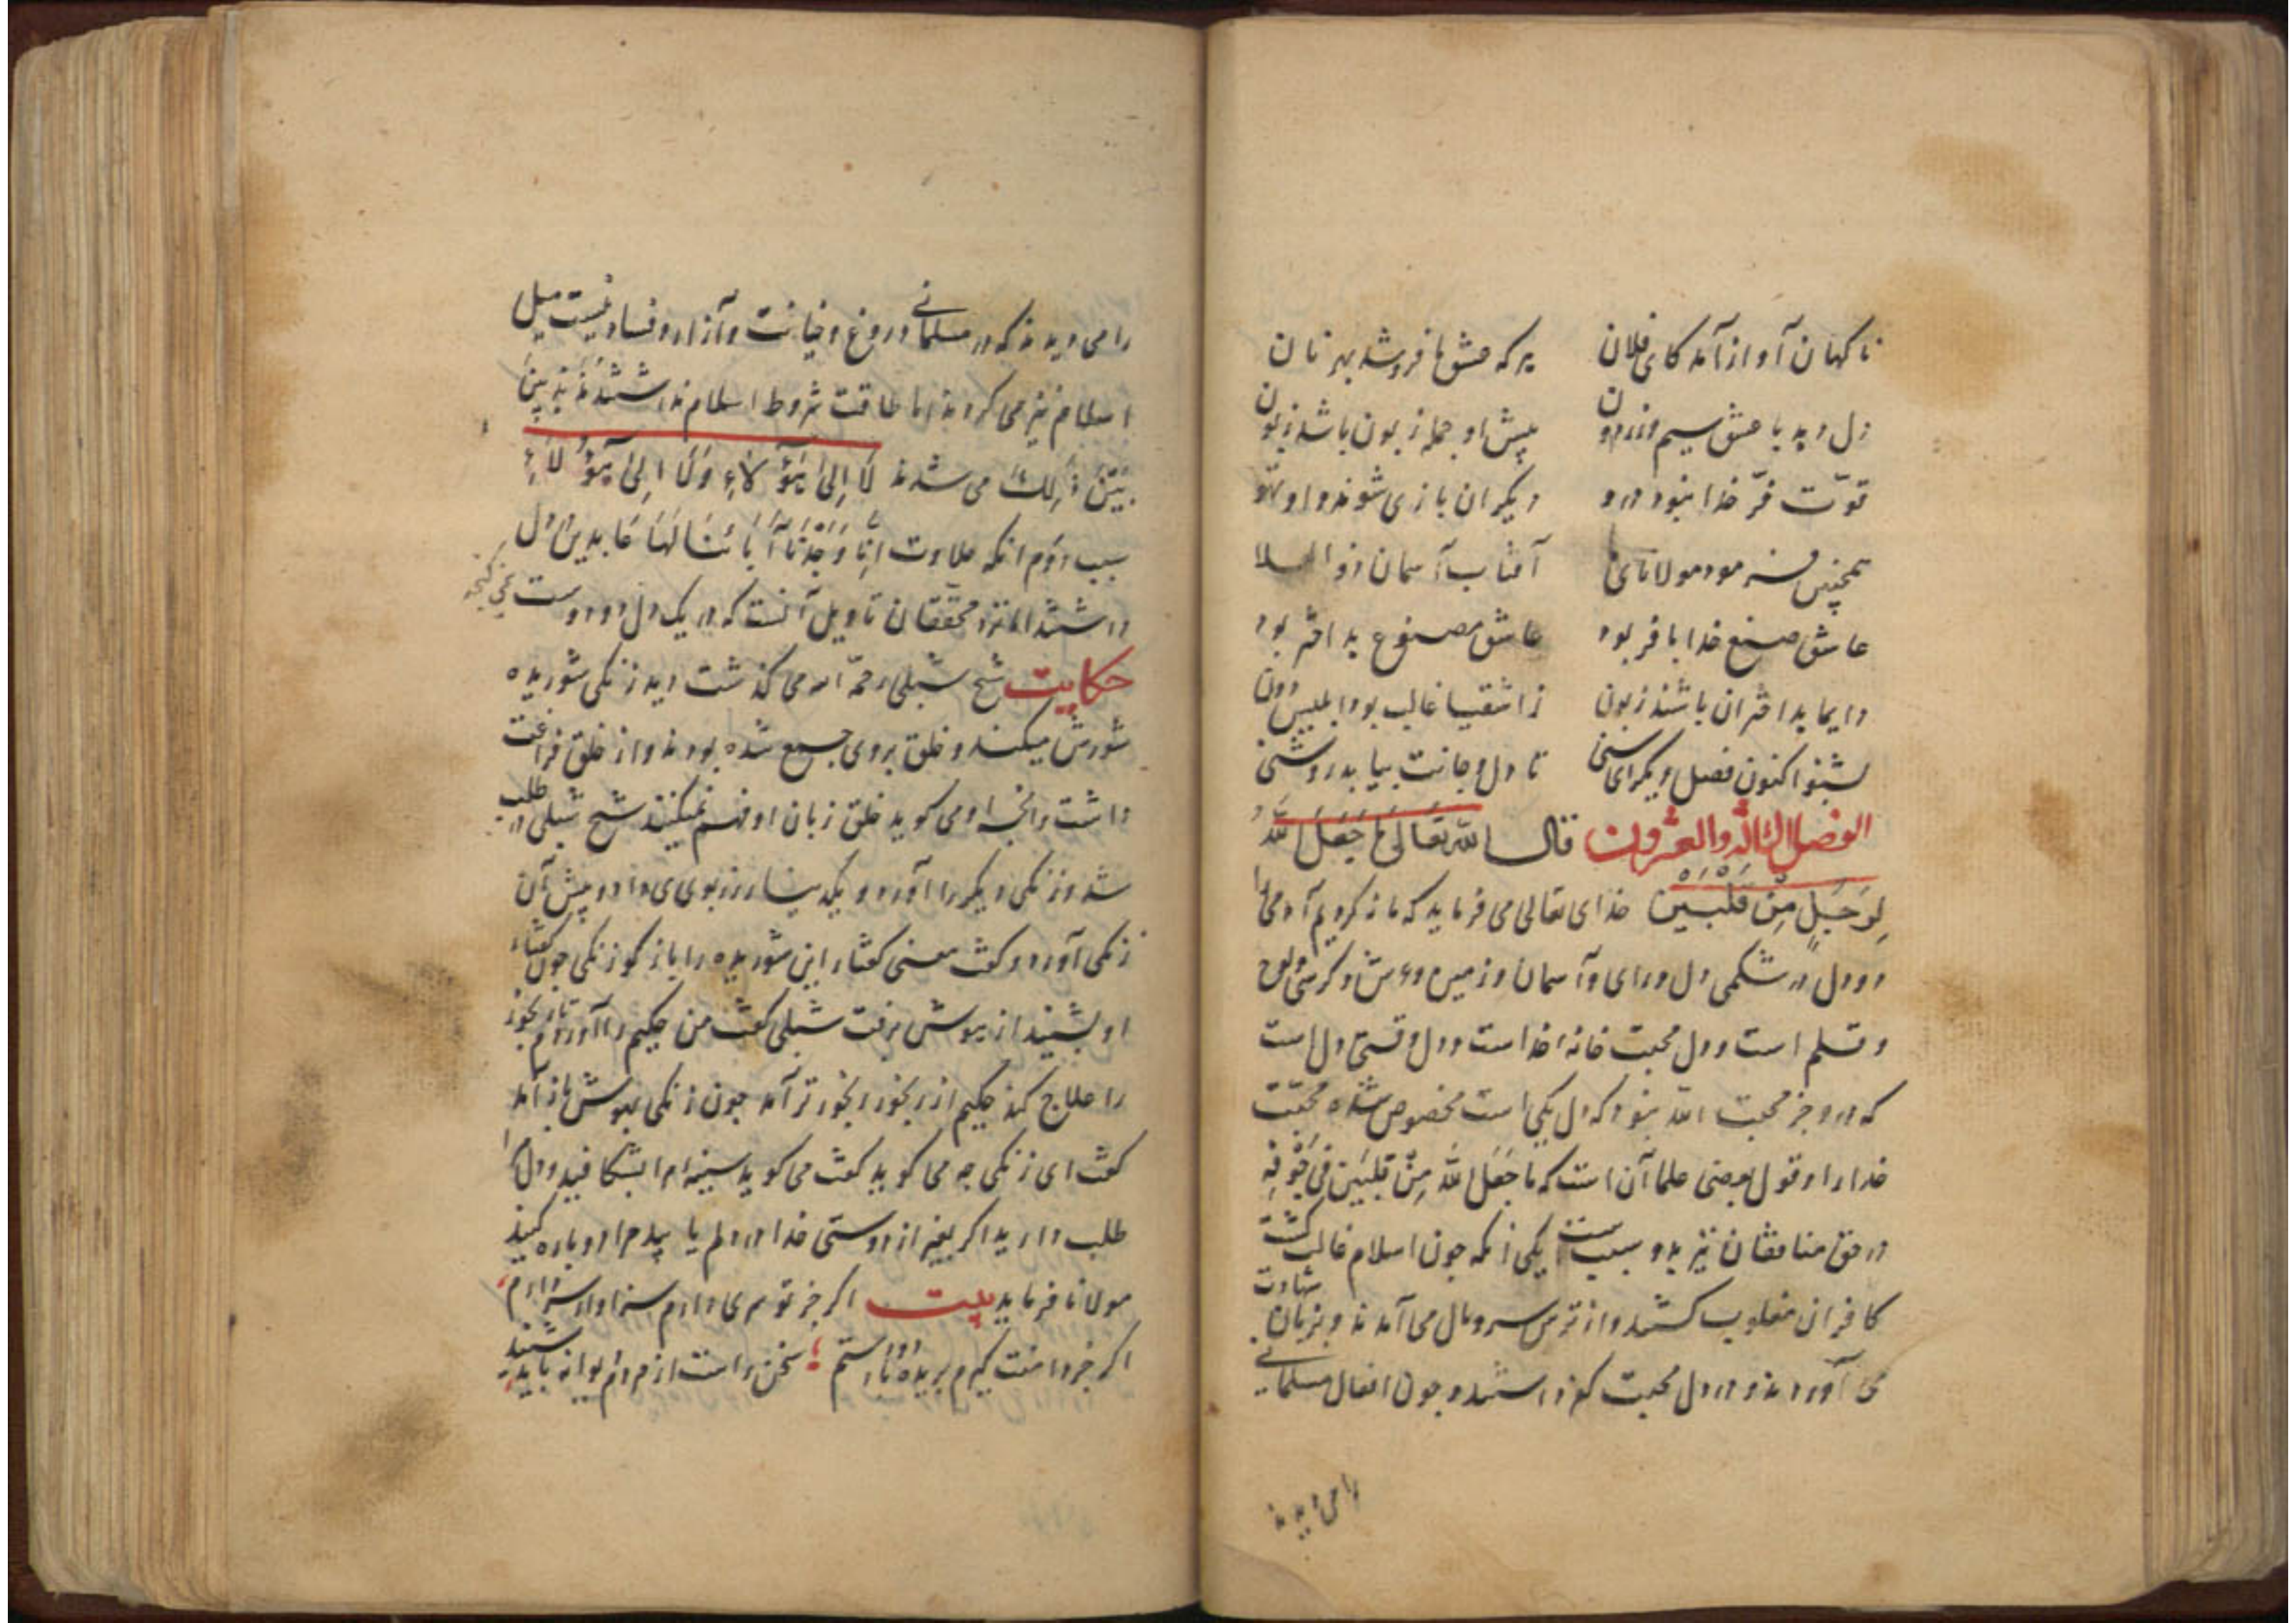 ناکهان آواز آمد کای فلان هر که عشق ما فروشد بهر نان
دل دهد با عشق سیم و زر دون پیش او جمله زبون باشد زبون
قوّت فرّ خدا نبود درو دیکران بازی شوند و او
همچنین فرمود مولانای ما آفتاب آسمان ذو العلا
عاشق صنع خدا با فر بود عاشق مصنوع بد اختر بود
دایما بد اختران باشند زبون ز اشقیا غالب بود ابلیس دون
بشنو اکنون فصل دیکر ای سنی تا دل و جانت بیابد روشنی
الفصل الثالث والعشرون قال الله تعالی ما جَعَلَ اللّهُ
لِرَجُلٍ مِنْ قَلْبَیْنِ خدای تعالی می فرماید که ما نکردیم آدمی را
دو دل در شکمی دل ورای آسمان و زمین و عرش و کرسی و لوح
و قلم است و دل محبت خانهٔ خداست و دل وقتی دل است
که درو جز محبت الله نبود که دل یکی است مخصوص شده محبّت
خدا را و قول بعضی علما آن است که ما جَعَلَ اللّهُ مِنْ قَلبَیْن فی جَوْفِهِ
در حق منافقان نیز بدو سبب است یکی آنکه چون اسلام غالب کشت
کافران مغلوب کشتند و از ترس سر و مال می آمدند و بزبان شهادت
می آوردند و در دل محبت کفر داشتند و چون افعال مسلمانی
را می دیدند
را می دیدند که در مسلمانی دروغ و خیانت و آزار و فساد نیست میل
اسلام نیز می کردند اما طاقت شروط اسلام نداشتند مُذَبْذَبِینَ
بَیْنَ ذٰلِكَ می شدند لَا اِلیٰ هٰؤُلَاءِ وَلَا اِلیٰ هٰؤُلَاءِ
سبب دوّم آنکه حلاوت اِنَّا وَجَدْنَا آبَائَنَا لَهَا عَابِدِینَ در دل
داشتند اما نزد محقّقان تاویل آنست که در یک دل دو دوست نمی کنجد
حکایت شیخ شبلی رحمه الله می کذشت دید زنکی شوریده
شورش میکند و خلق بر وی جمع شده بودند و از خلق فراغت
داشت و آنچه او می کوید خلق زبان او فهم نمیکنند شیخ شبلی در طلب
شد و زنکی دیکر را آورد و یک دینار زر بوی می داد و پیش آن
زنکی آورد و کفت معنی کفتار این شوریده را باز کو زنکی چون کفتار
او بشنید از هوش برفت شبلی کفت من حکیم را آوردم تا رنجور
را علاج کند حکیم از رنجور رنجورتر آمد چون زنکی بهوش باز آمد
کفت ای زنکی چه می کوید کفت می کوید سینه ام را بشکافید و دلم را
طلب دارید اکر بغیر از دوستی خدا در دلم یابید مرا دوباره کنید
مولانا فرماید بیت اکر جز تو سری دارم سزاوار سر دارم
اکر جز دامنت کیرم بریده باد دستم سخن راست از مردم دیوانه باید شنید